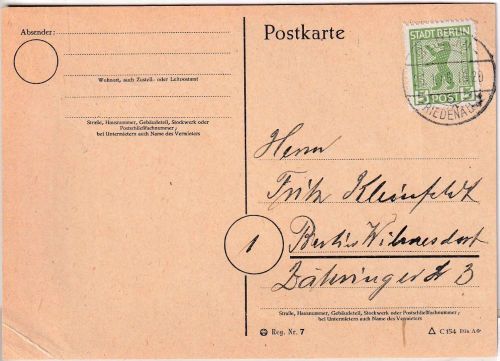 Absender:
Wohnort, auch Zustell- oder Leitpostamt
Straße, Hausnummer, Gebäudeteil, Stockwerk oder
Postschließfachnummer;
bei Untermietern auch Name des Vermieters
Postkarte
STADT BERLIN
5 POST 5
FRIEDENAU
Herrn
Fritz Kleinfeldt
1
Berlin Wilmersdorf
Zähringer Str 3
Straße, Hausnummer, Gebäudeteil, Stockwerk oder Postschließfachnummer;
bei Untermietern auch Name des Vermieters
Reg. Nr. 7
C 154 Din A 6